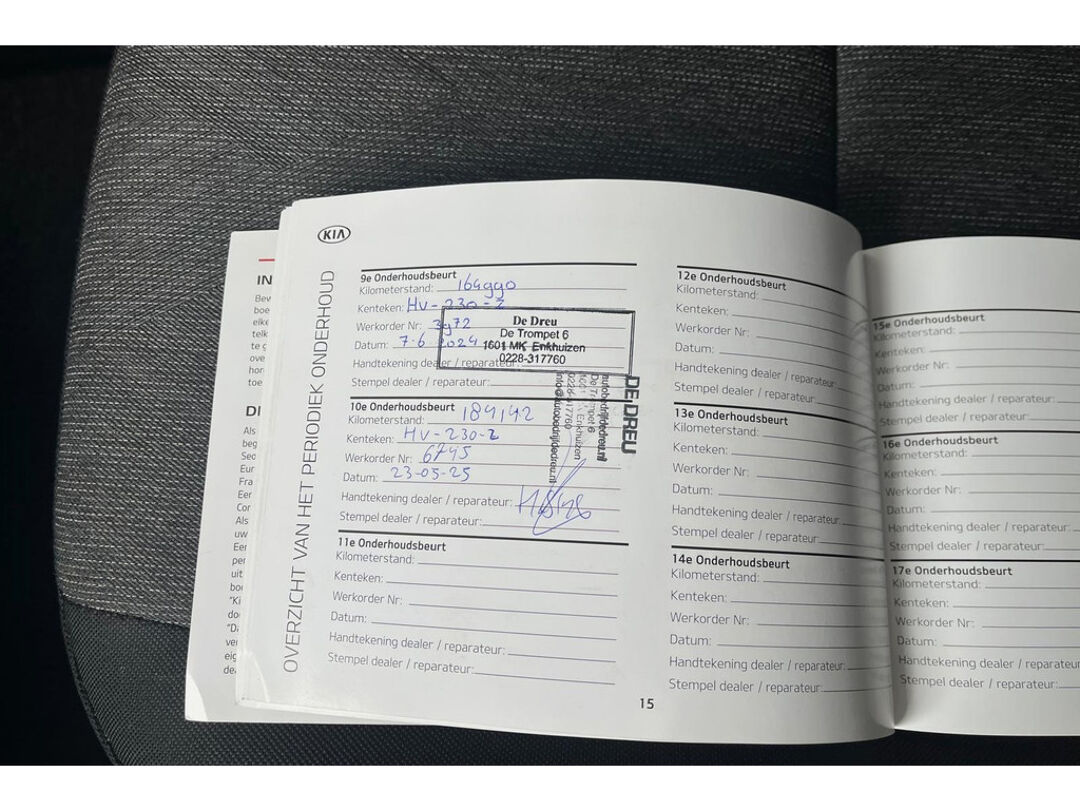 KIA
OVERZICHT VAN HET PERIODIEK ONDERHOUD
9e Onderhoudsbeurt
Kilometerstand: 164990
Kenteken: HV-230-Z
Werkorder Nr: 3972
Datum: 7-6 2024
Handtekening dealer / reparateur:
Stempel dealer / reparateur:
De Dreu
De Trompet 6
1601 MK Enkhuizen
0228-317760
10e Onderhoudsbeurt
Kilometerstand: 184142
Kenteken: HV-230-Z
Werkorder Nr: 6745
Datum: 23-05-25
Handtekening dealer / reparateur:
Stempel dealer / reparateur:
DE DREU
autobedrijfdedreu.nl
De Trompet 6
Enkhuizen
0228-317760
info@autobedrijfdedreu.nl
11e Onderhoudsbeurt
Kilometerstand:
Kenteken:
Werkorder Nr:
Datum:
Handtekening dealer / reparateur:
Stempel dealer / reparateur:
12e Onderhoudsbeurt
Kilometerstand:
Kenteken:
Werkorder Nr:
Datum:
Handtekening dealer / reparateur:
Stempel dealer / reparateur:
13e Onderhoudsbeurt
Kilometerstand:
Kenteken:
Werkorder Nr:
Datum:
Handtekening dealer / reparateur:
Stempel dealer / reparateur:
14e Onderhoudsbeurt
Kilometerstand:
Kenteken:
Werkorder Nr:
Datum:
Handtekening dealer / reparateur:
Stempel dealer / reparateur:
15
15e Onderhoudsbeurt
Kilometerstand:
Kenteken:
Werkorder Nr:
Datum:
Handtekening dealer / reparateur:
Stempel dealer / reparateur:
16e Onderhoudsbeurt
Kilometerstand:
Kenteken:
Werkorder Nr:
Datum:
Handtekening dealer / reparateur:
Stempel dealer / reparateur:
17e Onderhoudsbeurt
Kilometerstand:
Kenteken:
Werkorder Nr:
Datum:
Handtekening dealer / reparateur:
Stempel dealer / reparateur: